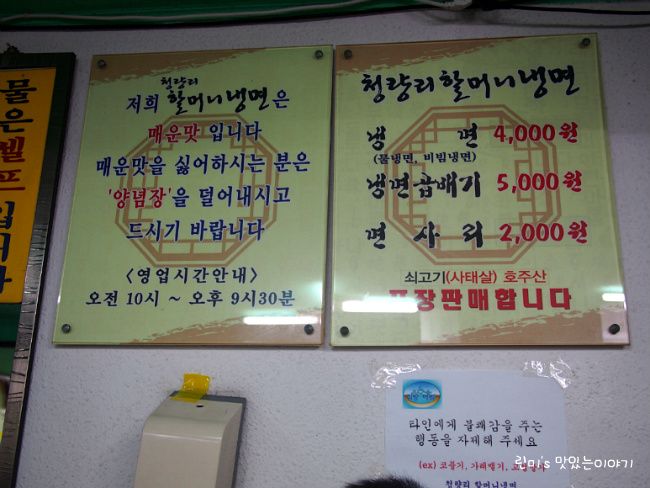 물은 셀프입니다
청량리
저희 할머니냉면은
매운맛 입니다
매운맛을 싫어하시는 분은
'양념장'을 덜어내시고
드시기 바랍니다
<영업시간안내>
오전 10시 ~ 오후 9시30분
청량리할머니냉면
냉 면 4,000원
(물냉면, 비빔냉면)
냉면곱배기 5,000원
면 사 리 2,000원
쇠고기(사태살) 호주산
포장판매합니다
타인에게 불쾌감을 주는
행동을 자제해 주세요
(ex) 코풀기, 가래뱉기,
청량리 할머니냉면
린미's 맛있는이야기